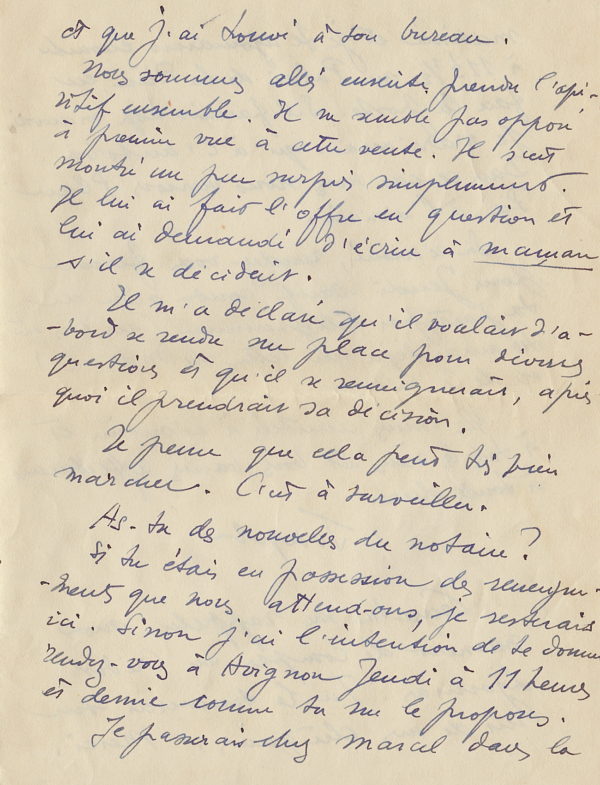 et que j'ai trouvé à son bureau.
Nous sommes allés ensuite prendre l'apé-
ritif ensemble. Il ne semble pas opposé
à première vue à cette vente. Il s'est
montré un peu surpris simplement.
Je lui ai fait l'offre en question et
lui ai demandé d'écrire à maman
s'il se décidait.
Il m'a déclaré qu'il voulait d'a-
-bord se rendre sur place pour diverses
questions et qu'il se renseignerait, après
quoi il prendrait sa décision.
Je pense que cela peut très bien
marcher. C'est à surveiller.
As-tu des nouvelles du notaire ?
Si tu étais en possession des renseigne-
-ments que nous attend-ons, je resterais
ici. Sinon j'ai l'intention de te donner
rendez-vous à Avignon Jeudi à 11 heures
et demie comme tu me le proposes.
Je passerais chez Marcel dans la